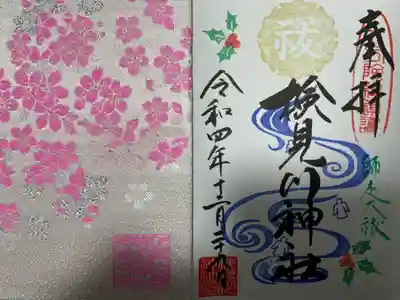 奉拝
師走大祓
祓
検見川神社
令和四年十二月二十九日